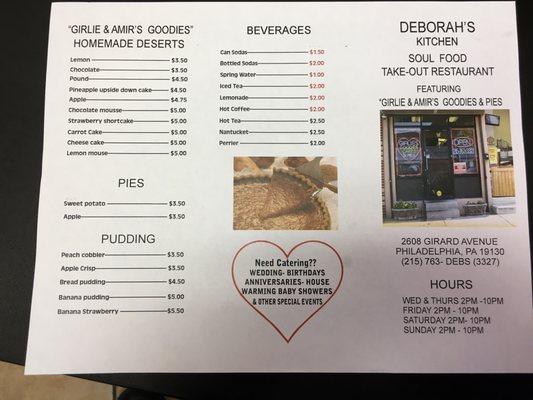 "GIRLIE & AMIR'S GOODIES"
HOMEMADE DESERTS
Lemon $3.50
Chocolate $3.50
Pound $4.50
Pineapple upside down cake $4.50
Apple $4.75
Chocolate mousse $5.00
Strawberry shortcake $5.00
Carrot Cake $5.00
Cheese cake $5.00
Lemon mouse $5.00
PIES
Sweet potato $3.50
Apple $3.50
PUDDING
Peach cobbler $3.50
Apple Crisp $3.50
Bread pudding $4.50
Banana pudding $5.00
Banana Strawberry $5.50
BEVERAGES
Can Sodas $1.50
Bottled Sodas $2.00
Spring Water $1.00
Iced Tea $2.00
Lemonade $2.00
Hot Coffee $2.00
Hot Tea $2.50
Nantucket $2.50
Perrier $2.00
Need Catering??
WEDDING- BIRTHDAYS
ANNIVERSARIES- HOUSE
WARMING BABY SHOWERS
& OTHER SPECIAL EVENTS
DEBORAH'S
KITCHEN
SOUL FOOD
TAKE-OUT RESTAURANT
FEATURING
"GIRLIE & AMIR'S GOODIES & PIES
OPEN
2608 GIRARD AVENUE
PHILADELPHIA, PA 19130
(215) 763- DEBS (3327)
HOURS
WED & THURS 2PM -10PM
FRIDAY 2PM - 10PM
SATURDAY 2PM- 10PM
SUNDAY 2PM- 10PM